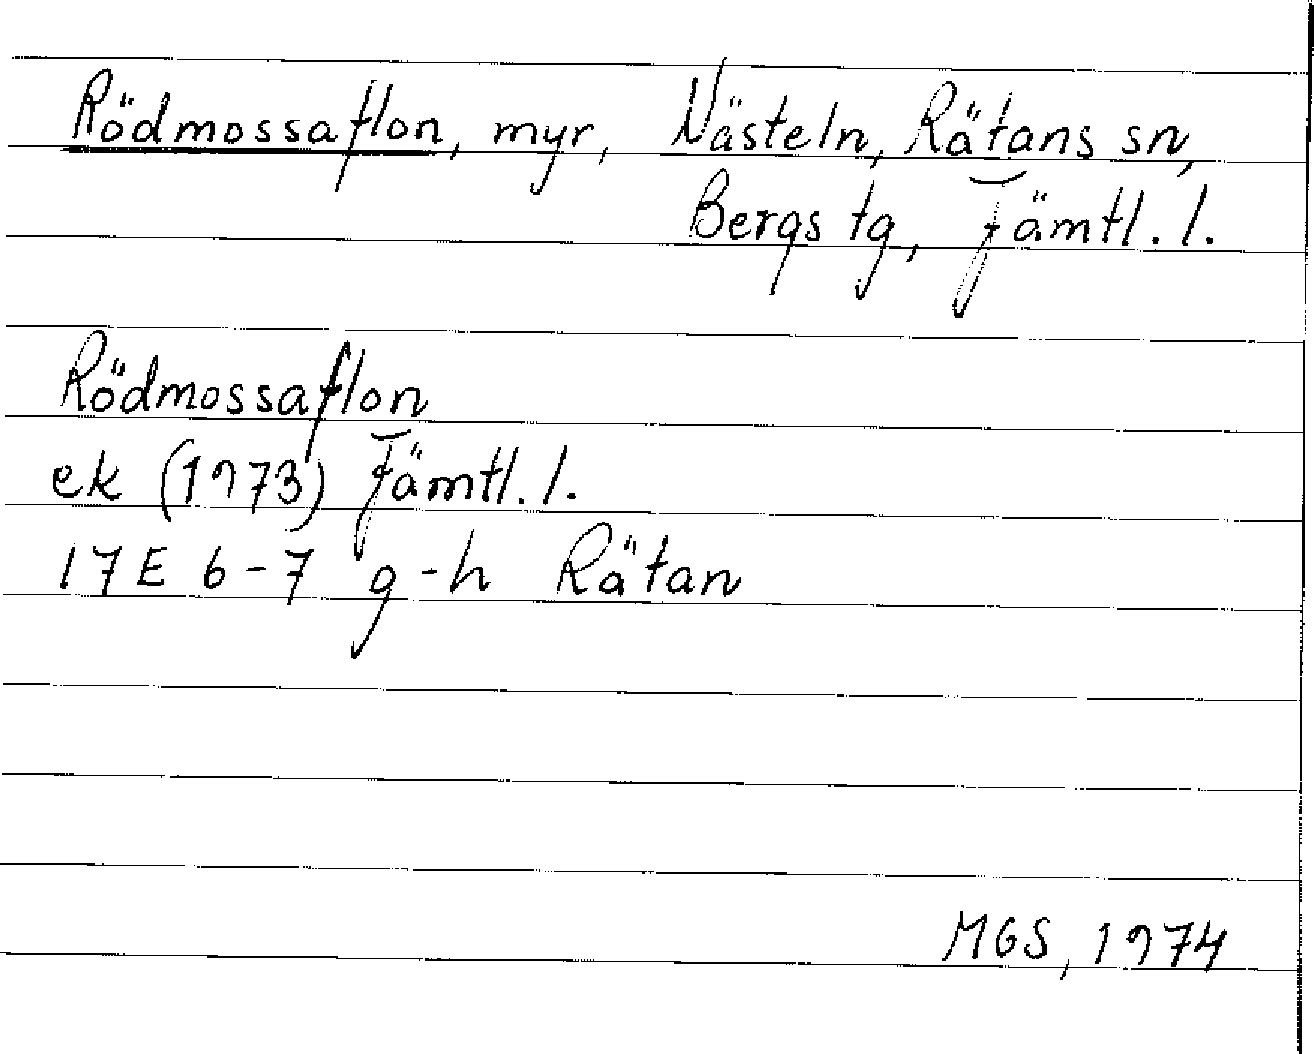 Rödmossaflon, myr, Nästeln, Rätans sn,
Bergs tg, Jämtl. l.
Rödmossaflon
ek (1973) Jämtl. l.
17E 6-7 g-h Rätan
MGS, 1974